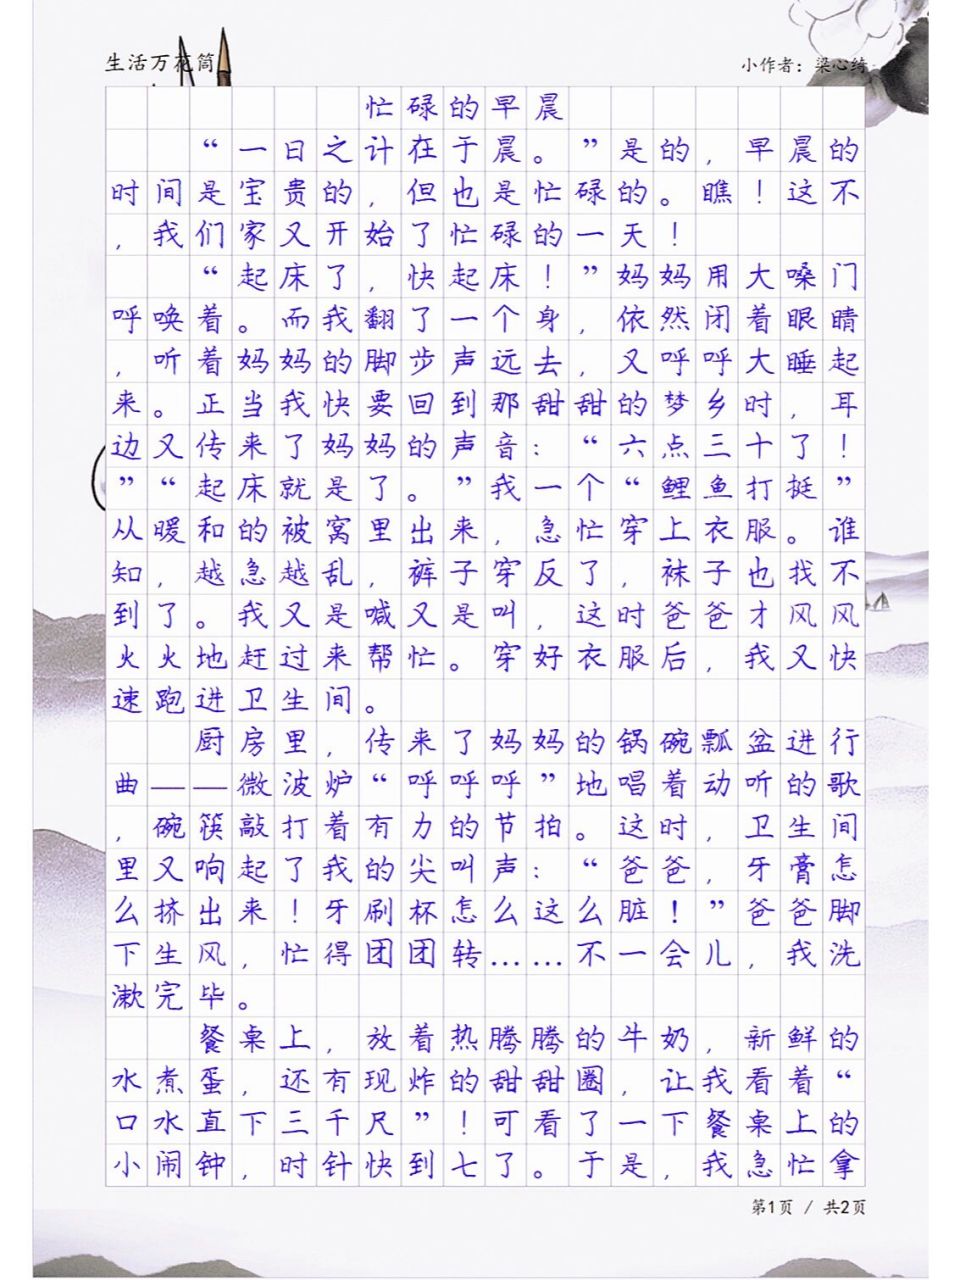 生活万花筒
小作者：梁心绮
忙碌的早晨
“一日之计在于晨。”是的，早晨的
时间是宝贵的，但也是忙碌的。瞧！这不
，我们家又开始了忙碌的一天！
“起床了，快起床！”妈妈用大嗓门
呼唤着。而我翻了一个身，依然闭着眼睛
，听着妈妈的脚步声远去，又呼呼大睡起
来。正当我快要回到那甜甜的梦乡时，耳
边又传来了妈妈的声音：“六点三十了！
”“起床就是了。”我一个“鲤鱼打挺”
从暖和的被窝里出来，急忙穿上衣服。谁
知，越急越乱，裤子穿反了，袜子也找不
到了。我又是喊又是叫，这时爸爸才风风
火火地赶过来帮忙。穿好衣服后，我又快
速跑进卫生间。
厨房里，传来了妈妈的锅碗瓢盆进行
曲——微波炉“呼呼呼”地唱着动听的歌
，碗筷敲打着有力的节拍。这时，卫生间
里又响起了我的尖叫声：“爸爸，牙膏怎
么挤出来！牙刷杯怎么这么脏！”爸爸脚
下生风，忙得团团转……不一会儿，我洗
漱完毕。
餐桌上，放着热腾腾的牛奶，新鲜的
水煮蛋，还有现炸的甜甜圈，让我看着“
口水直下三千尺”！可看了一下餐桌上的
小闹钟，时针快到七了。于是，我急忙拿
第1页 / 共2页